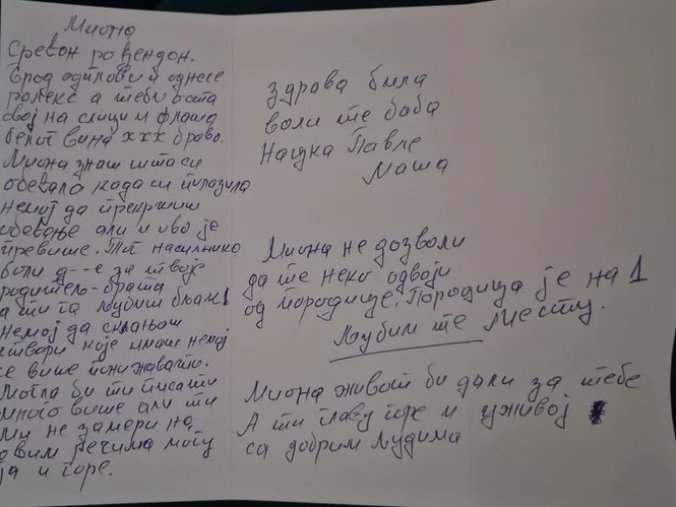 Миона
Срећан рођендан.
Брод однесе
ролекс а теби оста
овај на слици и флаша
белог вина ххх браво.
Миона знаш шта си
обећала када си
немој да прекршиш
обећање али и ово је
превише. Тај насилник
боли д--е за твоје
родитељ-браћа
а ти га љубиш бљак
немој да склањаш
ствари које имаш немој
се више понижавати.
Могла би ти писати
много више али ти
ми не замери на
овим речима могу
ја и горе.
здрава била
воли те баба
Нацка Павле
Маша
Миона не дозволи
да те неко одвоји
од породице. Породица је на 1
Љубим те месту.
Миона живот би дали за тебе
А ти главу горе и уживај
са добрим људима